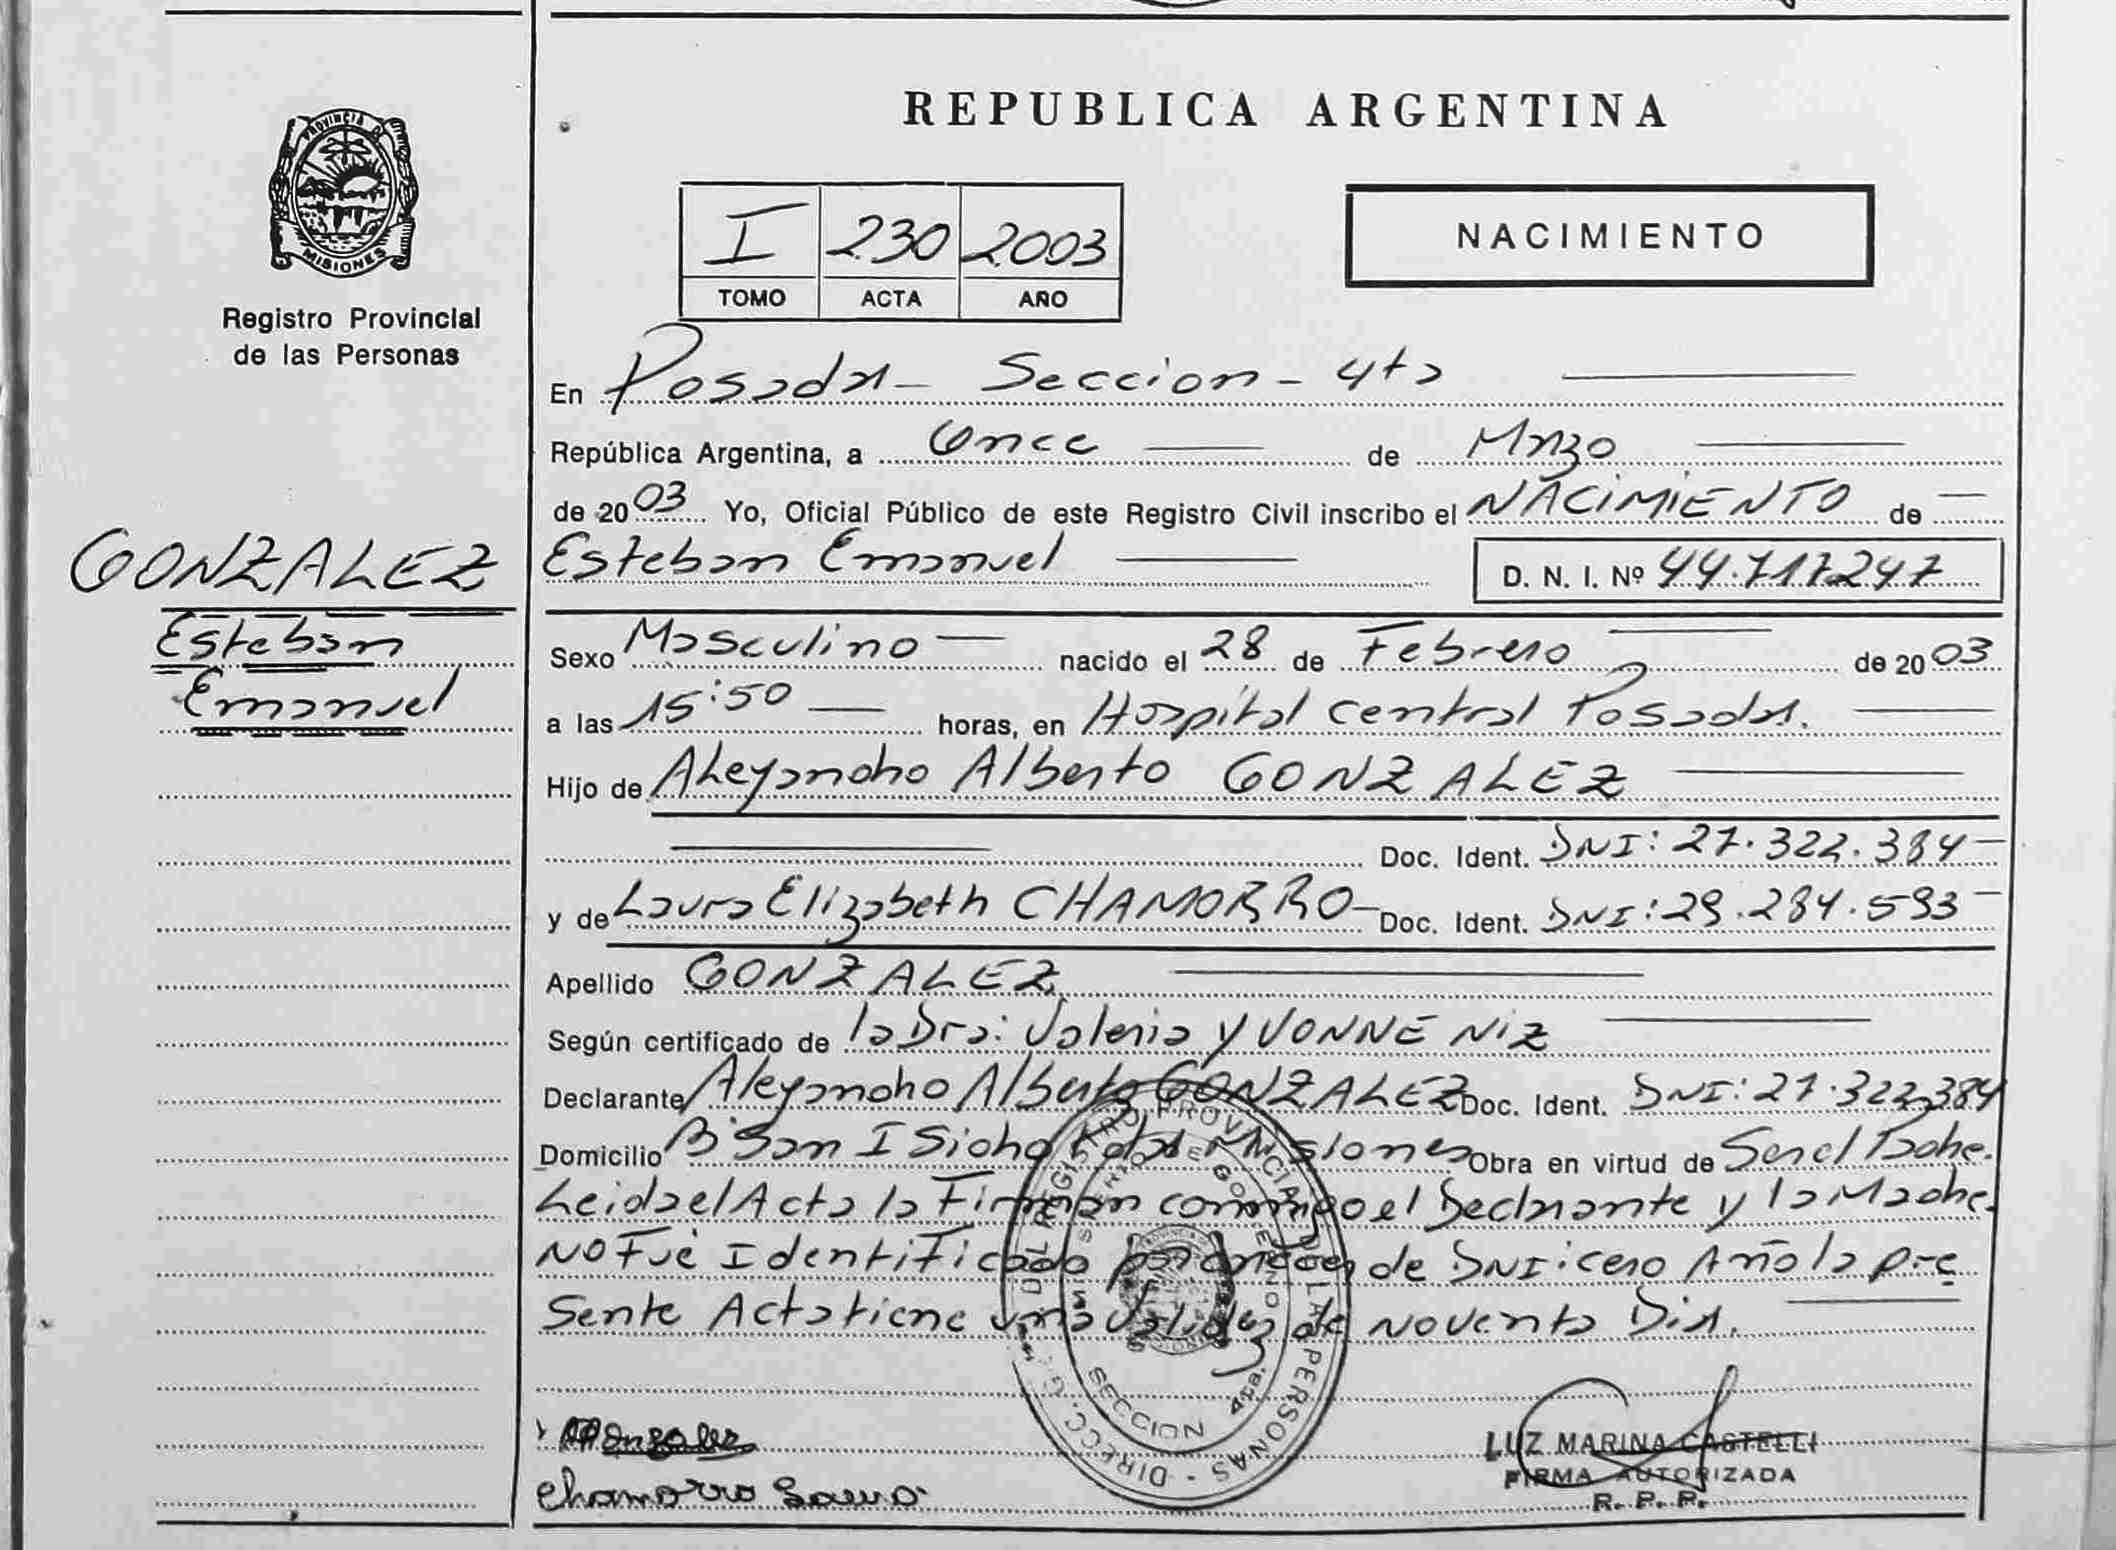 PROVINCIA D
MISIONES
Registro Provincial
de las Personas
GONZALEZ
Esteban
Emanuel
REPUBLICA ARGENTINA
I 230 2003
TOMO ACTA AÑO
NACIMIENTO
En Posadas - Seccion - 4ta
República Argentina, a Once de Marzo
de 2003 Yo, Oficial Público de este Registro Civil inscribo el NACIMIENTO de
Esteban Emanuel D. N. I. Nº 44.717.247
Sexo Masculino nacido el 28 de Febrero de 2003
a las 15:50 horas, en Hospital Central Posadas.
Hijo de Aleyandro Alberto GONZALEZ
Doc. Ident. DNI: 27.322.384
y de Laura Elizabeth CHAMORRO Doc. Ident. DNI: 29.284.593
Apellido GONZALEZ
Según certificado de la Dra: Valeria YVONNE NIZ
Declarante Aleyandro Alberto GONZALEZ Doc. Ident. DNI: 27.322.384
Domicilio B° San Isidro Pdas Misiones Obra en virtud de Ser el Padre.
Leida el Acta la Firman conmigo el Declarante y la Madre.
NO Fué Identificado por de DNI: cero Año la pre
sente Acta tiene una validez de Noventa Dias.
DIRECC. G. DEL REGISTRO PROVINCIAL DE LAS PERSONAS
MINISTERIO DE GOBIERNO
SECCION 4ta.
AAGonzalez
Chamorro Laura
LUZ MARINA CASTELLI
FIRMA AUTORIZADA
R. P. P.